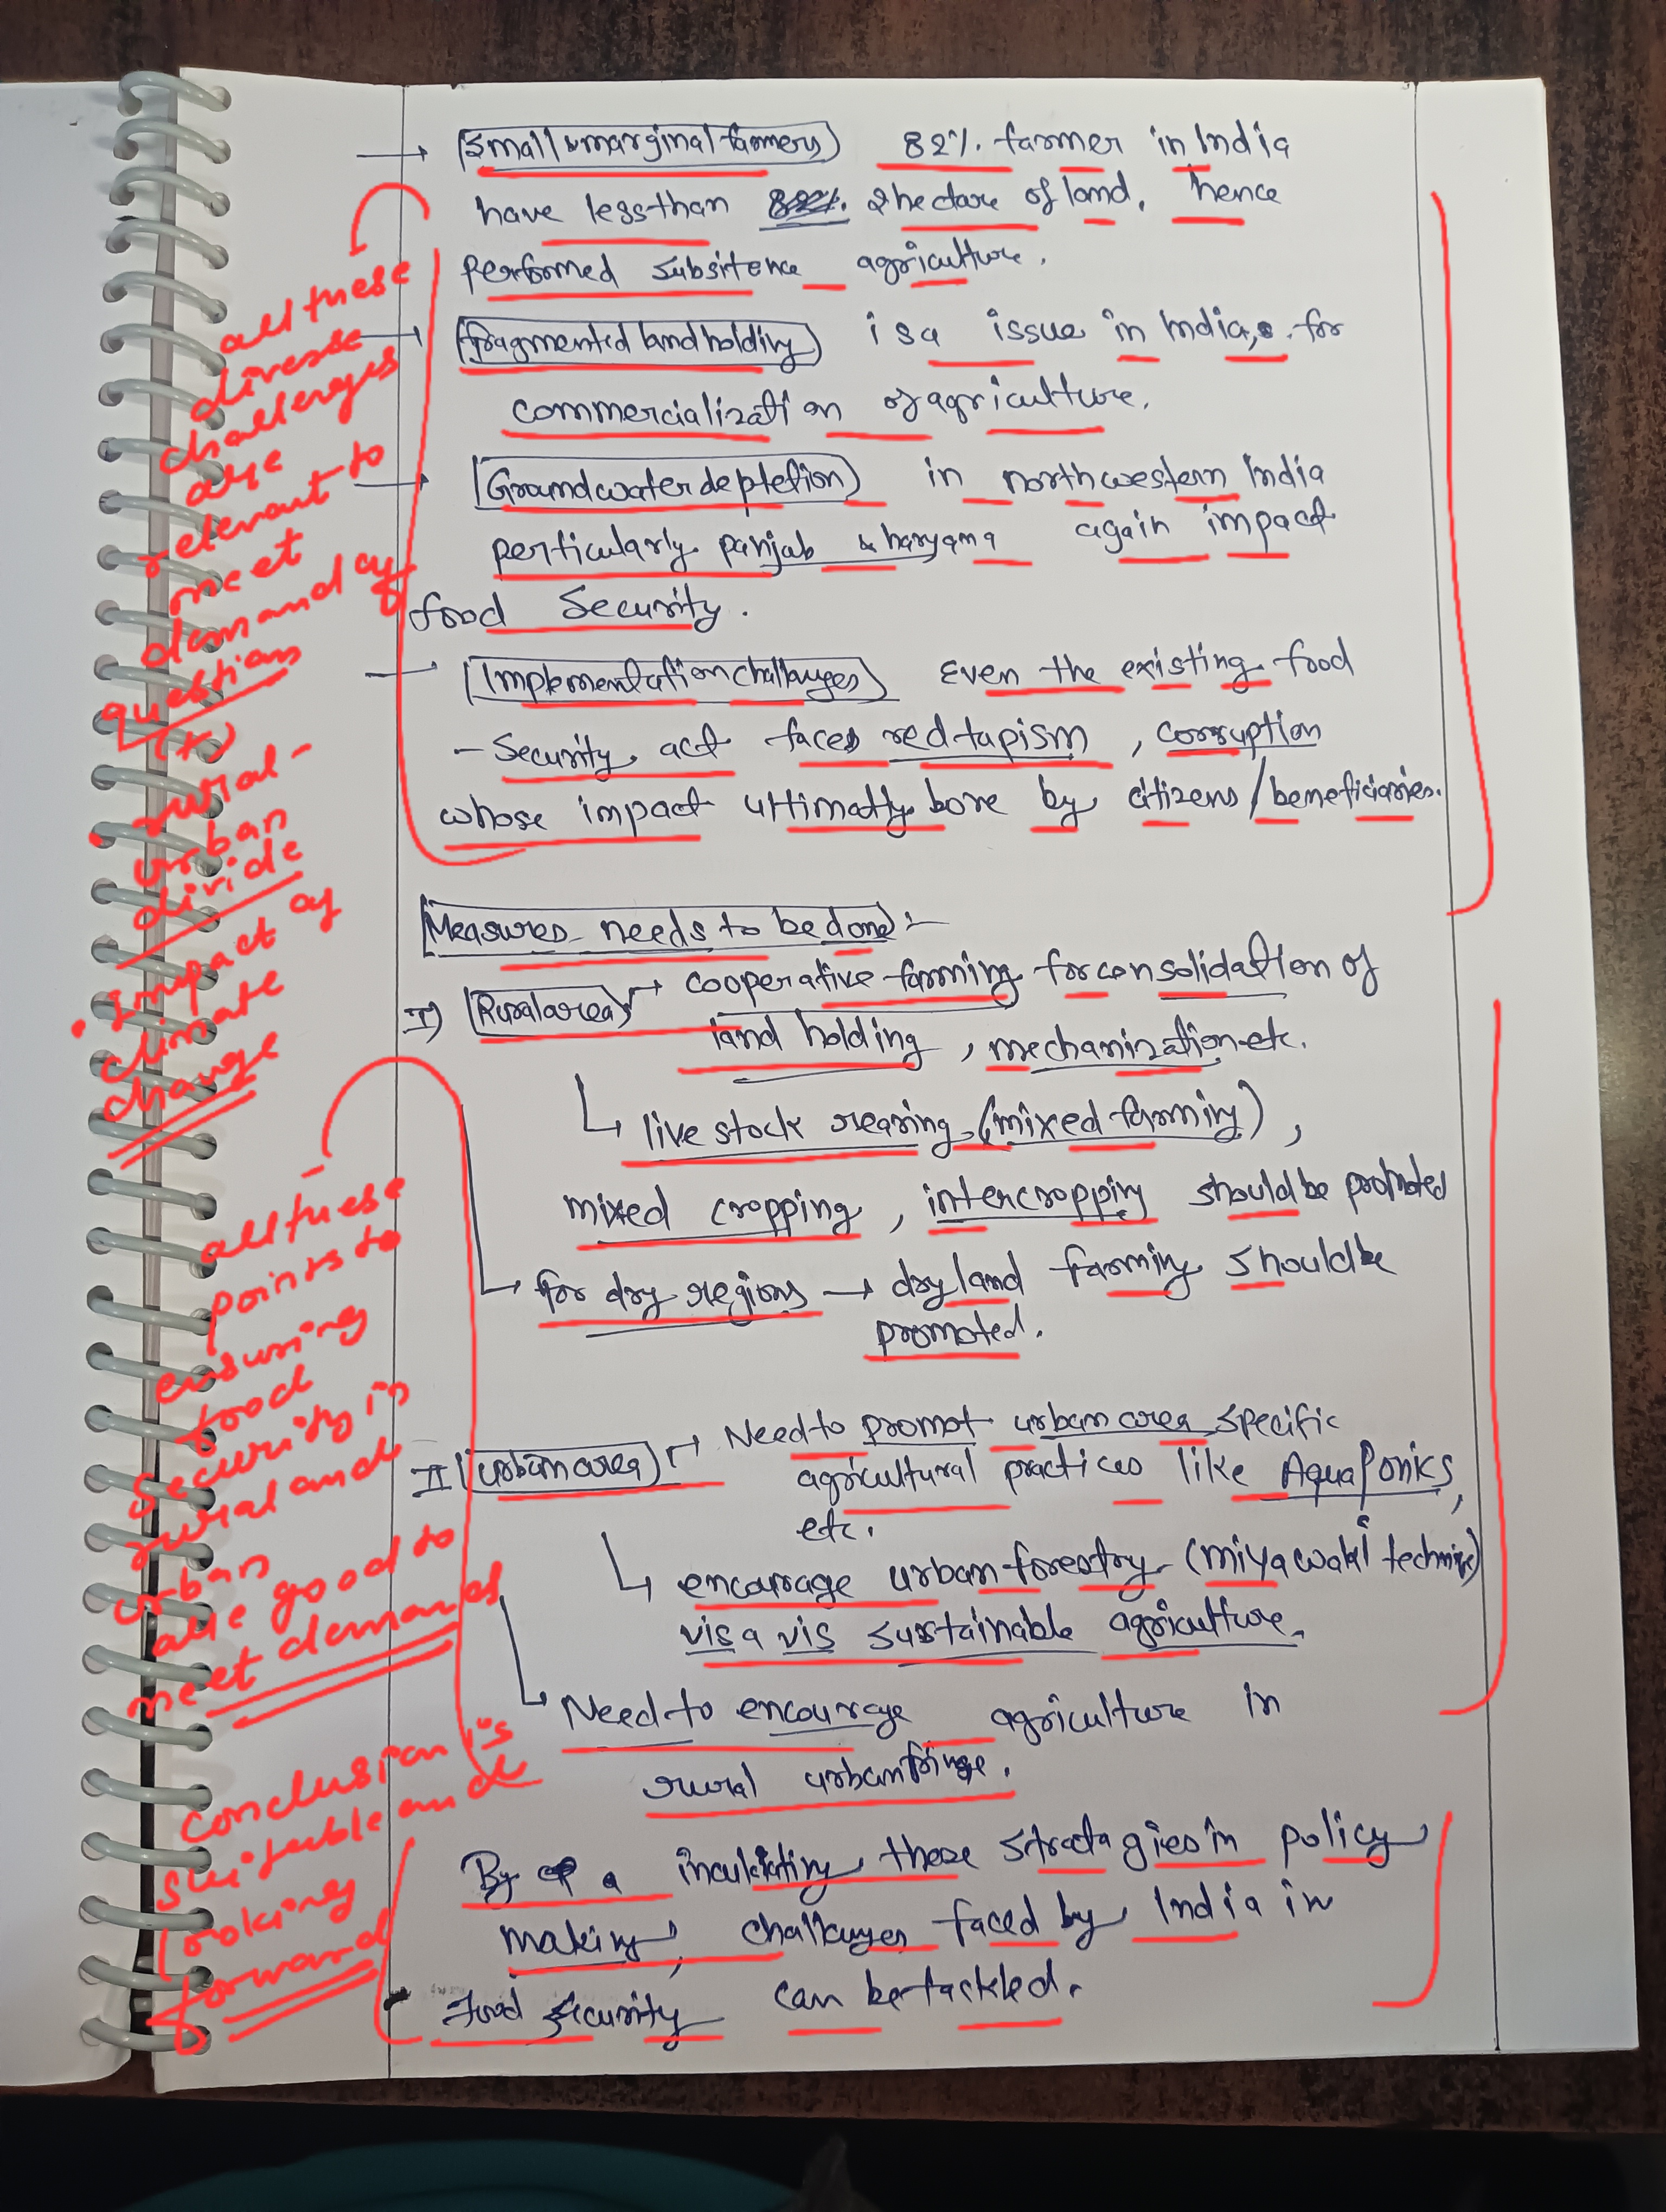 → Small & marginal farmers 82% farmer in India
have less than 82%. 2 hectare of land, hence
performed subsitence agriculture.
→ fragmented land holding is a issue in India, for
commercialization of agriculture.
→ Groundwater depletion in northwestern India
perticularly panjab & haryana again impact
food security.
→ Implementation challenges Even the existing food
- Security act faces redtapism, corruption
whose impact ultimatly bore by citizens/beneficiaries.
all these
diverse
challenges
are
relevant to
meet
demand of
question
(+)
• rural-
urban
divide
• Impact of
climate
change
Measures needs to be done :-
I) Rural area → cooperative farming for consolidation of
land holding, mechanization etc.
↳ live stock rearing (mixed farming),
mixed cropping, intercropping should be promoted
↳ for dry regions → dry land farming should be
promoted.
II Urban area → Need to promot urban area specific
agricultural practices like Aquaponics,
etc.
↳ encourage urban forestry (miyawaki technique)
vis a vis sustainable agriculture.
↳ Need to encourage agriculture in
rural urban fringe.
all these
points to
ensuring
food
security in
rural and
urban
are good to
meet demands
By a inculcating these stratagies in policy
making, challenges faced by India in
Food security can be tackled.
conclusion is
suitable and
looking
forward